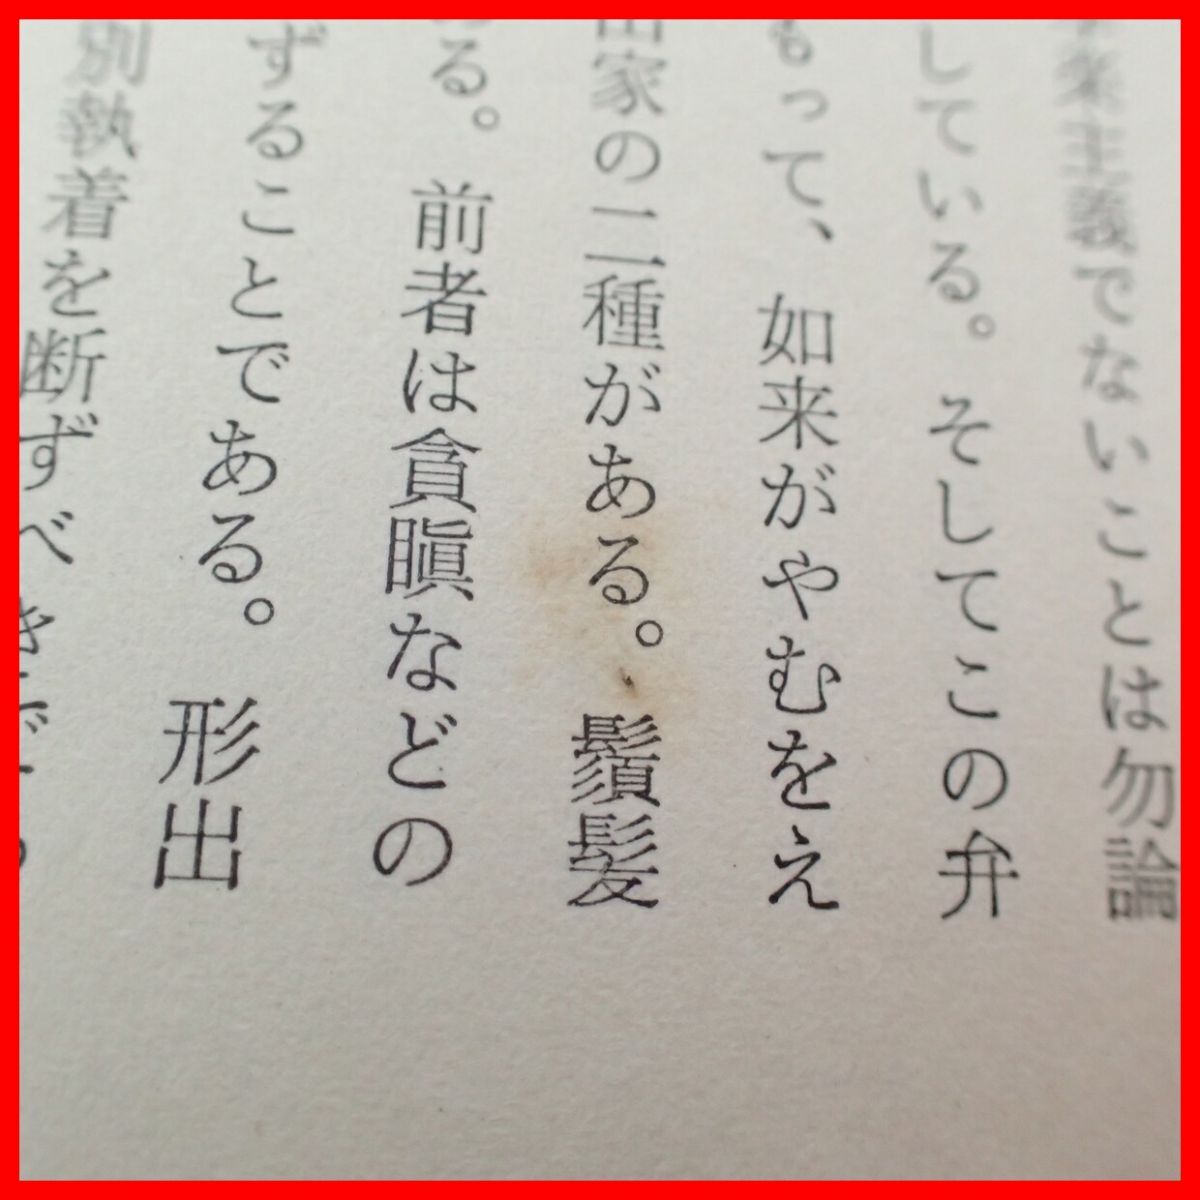 主義でないことは勿論
している。そしてこの弁
もって、如来がやむをえ
出家の二種がある。鬚髪
る。前者は貪瞋などの
ずることである。形出
別執着を断ずべき